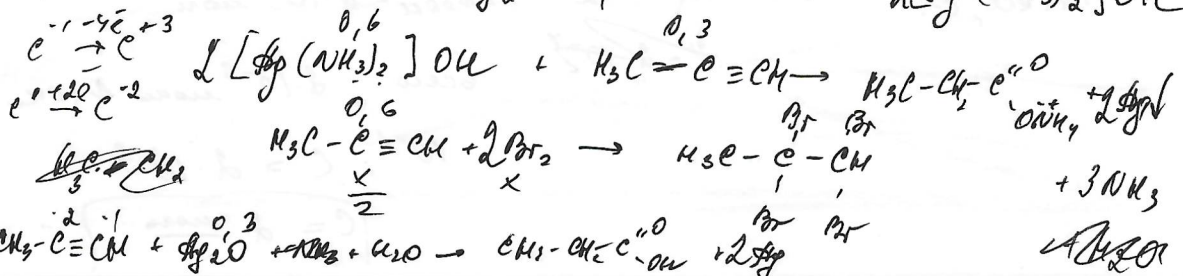 C⁻¹ -4e→ C⁺³ 2[Ag(NH₃)₂]OH + H₃C-C≡CH → H₃C-CH₂-C=O ONH₄ + 2Ag↓
0,6 0,3
C⁰ +2e→ C⁻² 0,6
H₃C-C≡CH + 2Br₂ → H₃C-C-CH + 3NH₃
Br Br
x/2 x
Br Br
CH₃-C≡CH + Ag₂O + H₂O → CH₃-CH₂-C=O OH + 2Ag
-2 -1 0,3